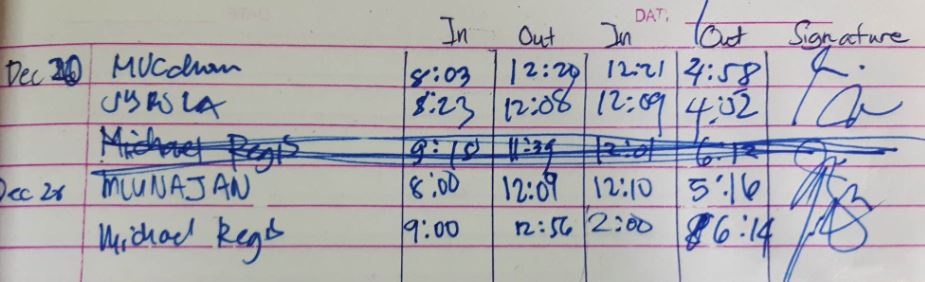 DAT.
In Out In Out Signature
Dec 20 8:03 12:20 12:21 4:58
8:23 12:08 12:09 4:52
Michael Regis 9:18 11:39 12:01 6:12
Dec MUNAJAN 8:00 12:09 12:10 5:16
Michael Regis 9:00 12:56 2:00 6:14